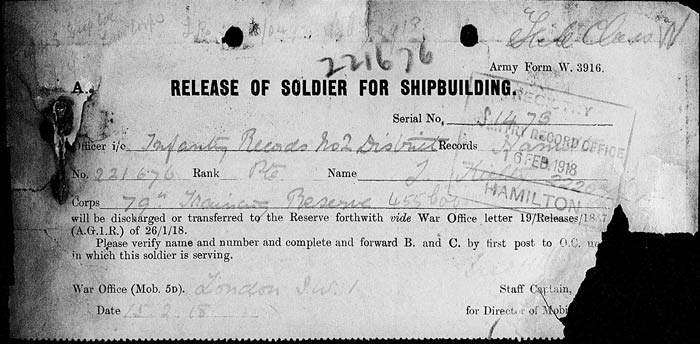 File Class W
221676
Army Form W. 3916.
A.
RELEASE OF SOLDIER FOR SHIPBUILDING.
Serial No. S.1473
REGISTRY
INFANTRY RECORD OFFICE
16 FEB. 1918
HAMILTON
Officer i/c Infantry Records No 2 District Records
No. 221676 Rank Pte. Name J
Corps 79th Training Reserve
will be discharged or transferred to the Reserve forthwith vide War Office letter 19/Releases/
(A.G.1.R.) of 26/1/18.
Please verify name and number and complete and forward B. and C. by first post to O.C.
in which this soldier is serving.
War Office (Mob. 5D). London S.W. 1
Staff Captain,
Date 15.2.18
for Director of